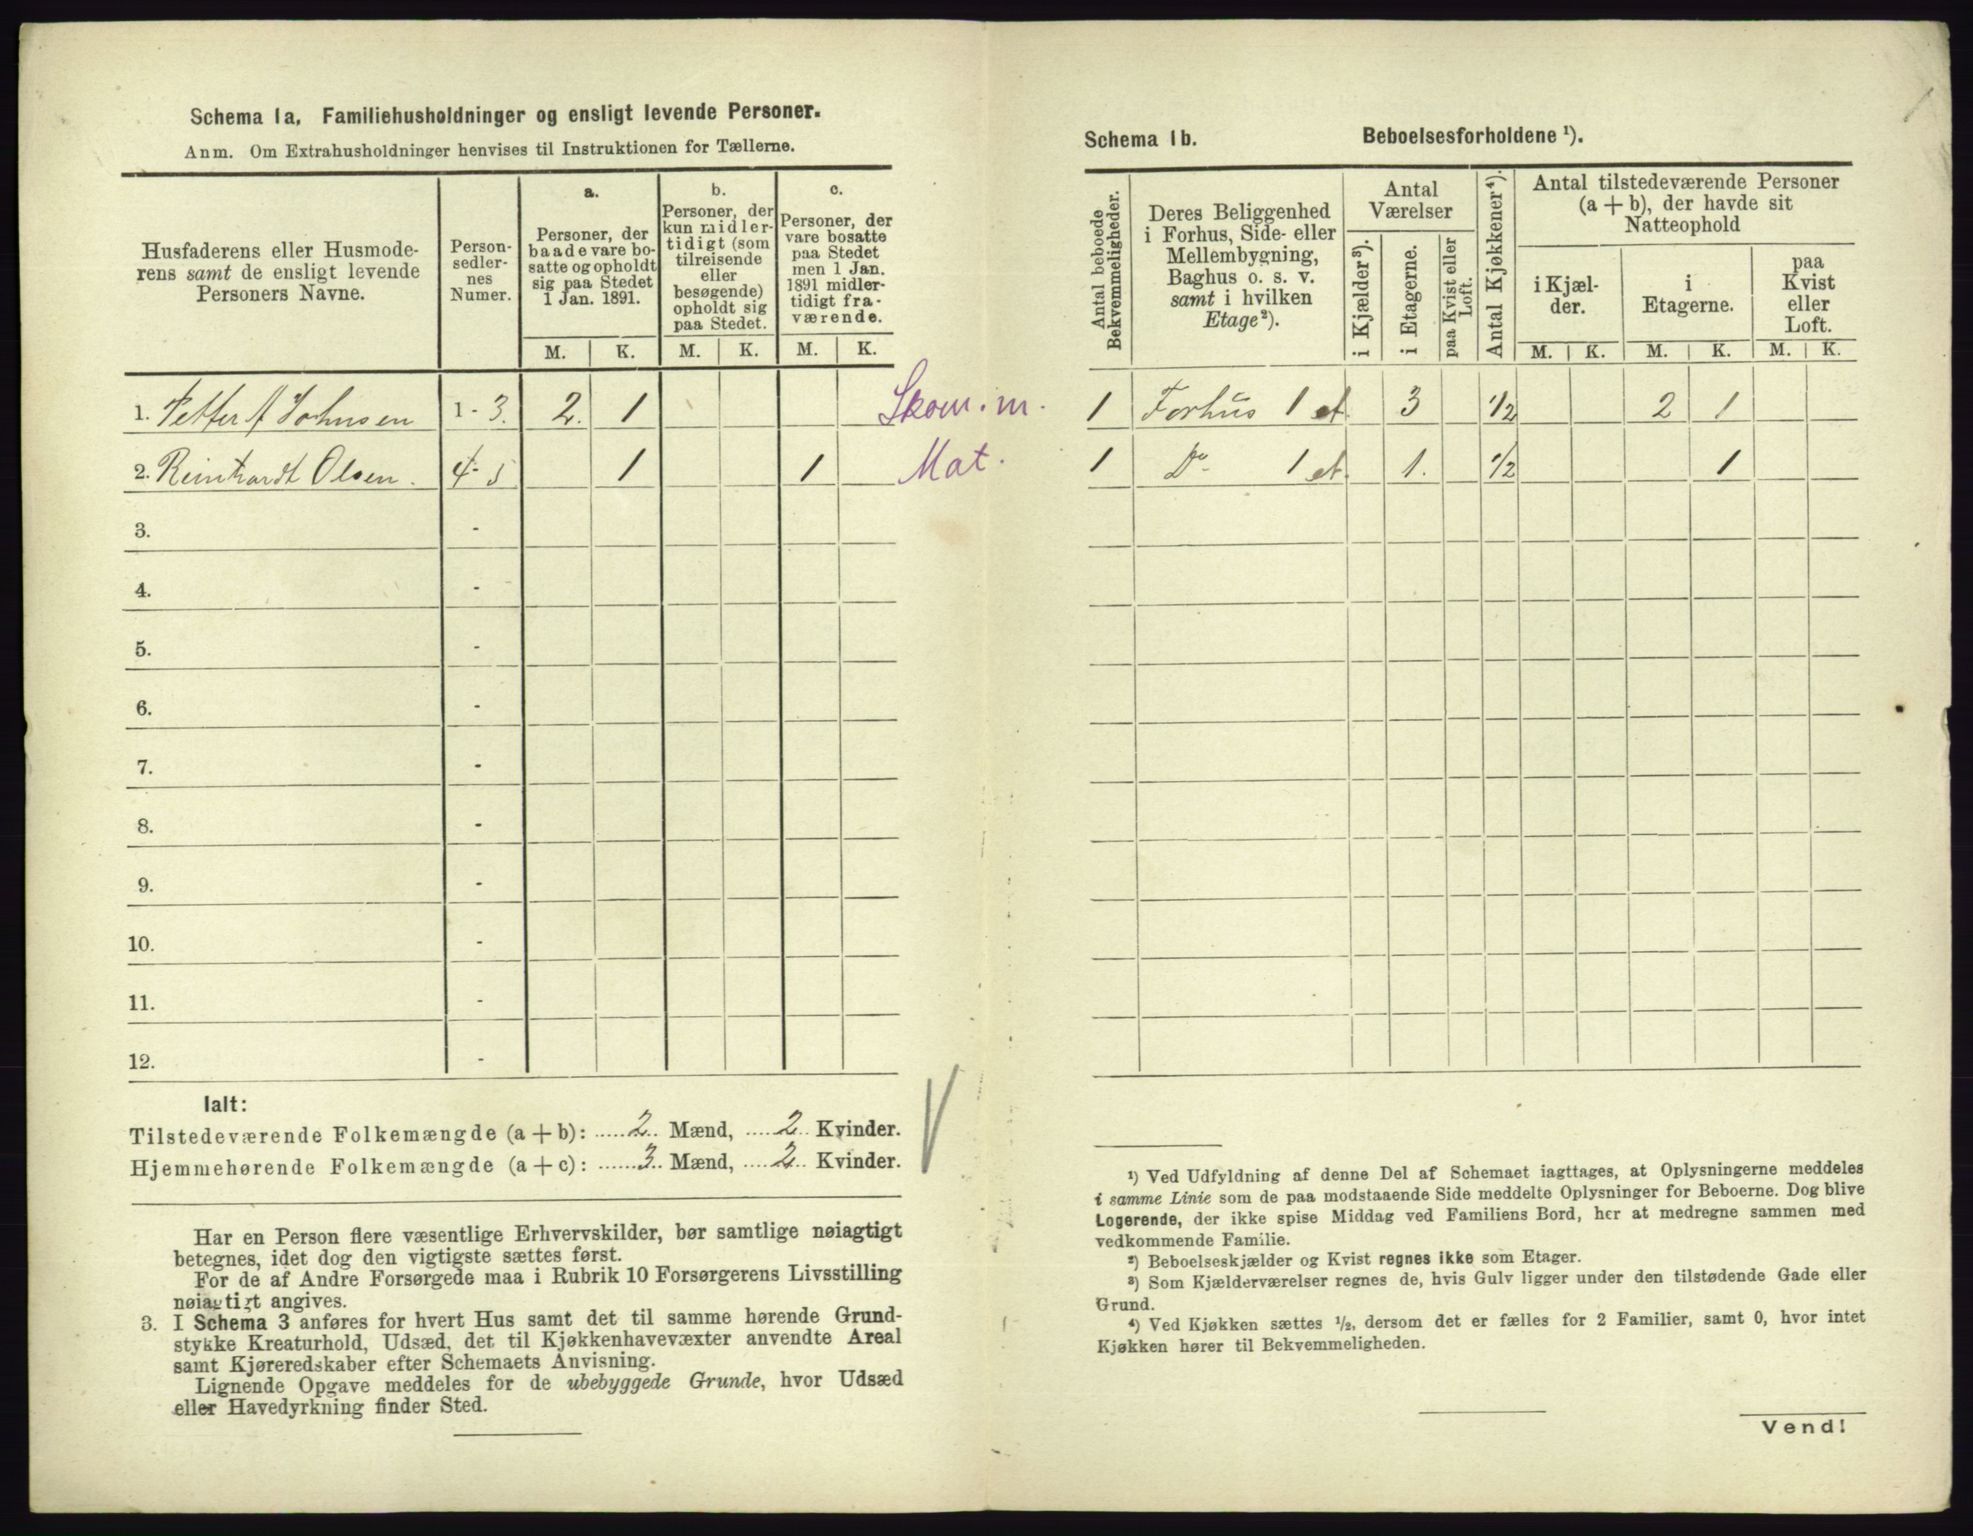 Schema 1a. Familiehusholdninger og ensligt levende Personer.
Anm. Om Extrahusholdninger henvises til Instruktionen for Tællerne.
Husfaderens eller Husmode-
rens samt de ensligt levende
Personers Navne.
Person-
sedler-
nes
Numer.
a.
Personer, der
baade vare bo-
satte og opholdt
sig paa Stedet
1 Jan. 1891.
b.
Personer, der
kun midler-
tidigt (som
tilreisende
eller
besøgende)
opholdt sig
paa Stedet.
c.
Personer, der
vare bosatte
paa Stedet
men 1 Jan.
1891 midler-
tidigt fra-
værende.
M. K. M. K. M. K.
1. Petter A Johnsen 1 - 3. 2. 1 Skom. m.
2. Reinhardt Olsen. 4 - 5 1 1 Mat.
3. -
4. -
5. -
6. -
7. -
8. -
9. -
10. -
11. -
12. -
Ialt:
Tilstedeværende Folkemængde (a + b): 2 Mænd, 2 Kvinder.
Hjemmehørende Folkemængde (a + c): 3 Mænd, 2 Kvinder.
Har en Person flere væsentlige Erhvervskilder, bør samtlige nøiagtigt
betegnes, idet dog den vigtigste sættes først.
For de af Andre Forsørgede maa i Rubrik 10 Forsørgerens Livsstilling
nøiagtigt angives.
3. I Schema 3 anføres for hvert Hus samt det til samme hørende Grund-
stykke Kreaturhold, Udsæd, det til Kjøkkenhavevæxter anvendte Areal
samt Kjøreredskaber efter Schemaets Anvisning.
Lignende Opgave meddeles for de ubebyggede Grunde, hvor Udsæd
eller Havedyrkning finder Sted.
Schema 1b. Beboelsesforholdene ¹).
Antal beboede
Bekvemmeligheder.
Deres Beliggenhed
i Forhus, Side- eller
Mellembygning,
Baghus o. s. v.
samt i hvilken
Etage²).
Antal
Værelser
i Kjælder³).
i Etagerne.
paa Kvist eller
Loft.
Antal Kjøkkener⁴).
Antal tilstedeværende Personer
(a + b), der havde sit
Natteophold
i Kjæl-
der.
i
Etagerne.
paa
Kvist
eller
Loft.
M. K. M. K. M. K.
1 Forhus 1 et. 3 1/2 2 1
1 Do 1 et. 1. 1/2 1
¹) Ved Udfyldning af denne Del af Schemaet iagttages, at Oplysningerne meddeles
i samme Linie som de paa modstaaende Side meddelte Oplysninger for Beboerne. Dog blive
Logerende, der ikke spise Middag ved Familiens Bord, her at medregne sammen med
vedkommende Familie.
²) Beboelseskjælder og Kvist regnes ikke som Etager.
³) Som Kjælderværelser regnes de, hvis Gulv ligger under den tilstødende Gade eller
Grund.
⁴) Ved Kjøkken sættes ½, dersom det er fælles for 2 Familier, samt 0, hvor intet
Kjøkken hører til Bekvemmeligheden.
Vend!